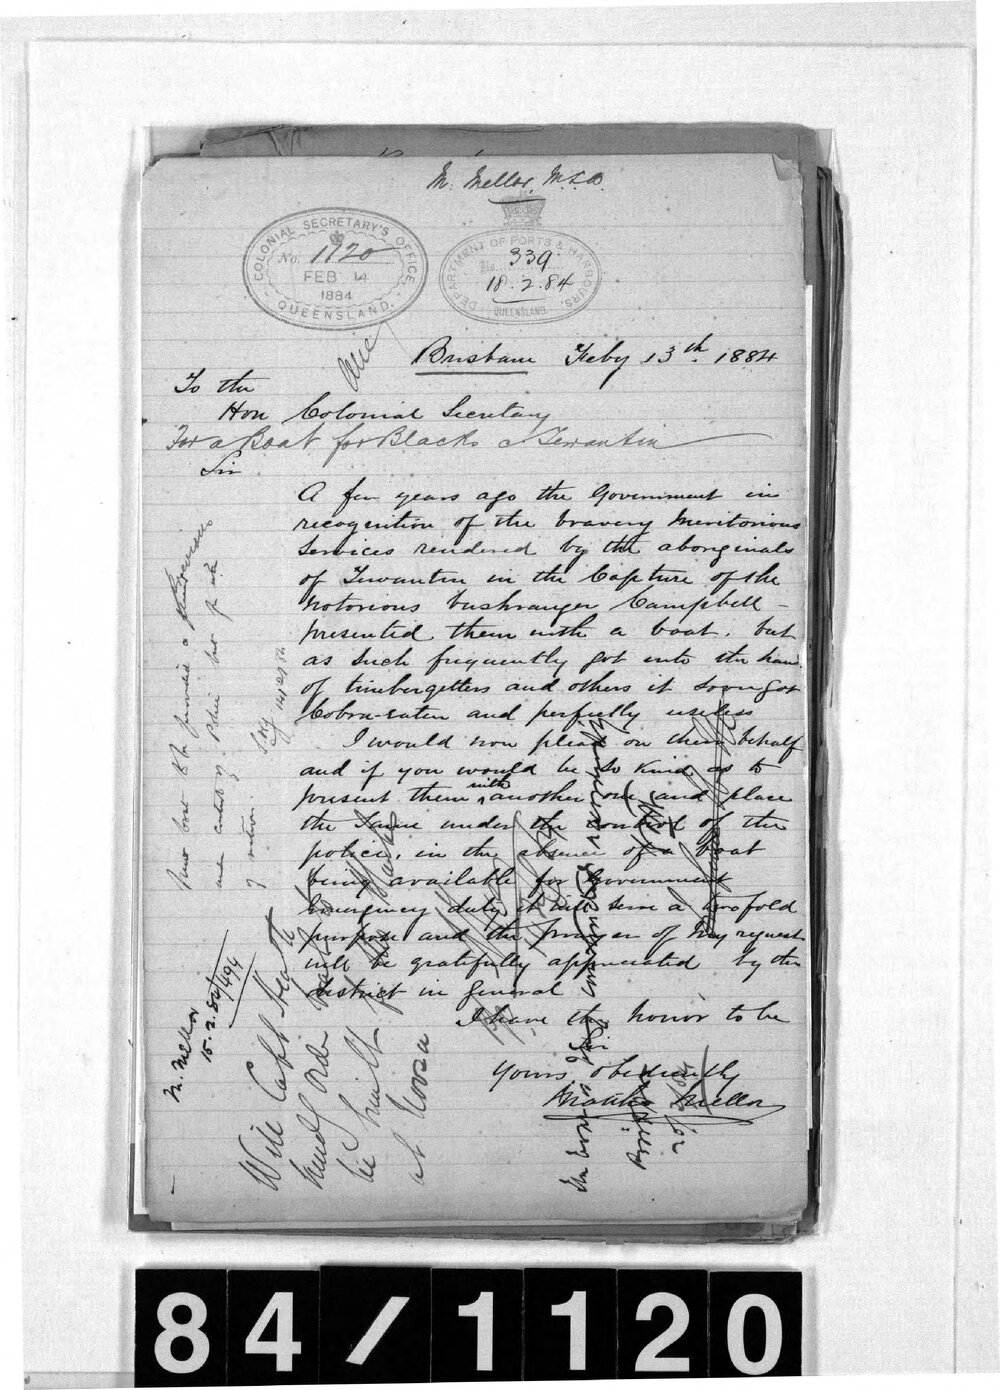 M. Mellor, M.L.A.
COLONIAL SECRETARY'S OFFICE,
No. 1120
FEB 14
1884
QUEENSLAND.
DEPARTMENT OF PORTS & HARBOURS,
No. 339
18.2.84
QUEENSLAND.
Brisbane Feby 13th 1884
To the
Hon Colonial Secretary
For a Boat for Blacks @ Tewantin
Sir
A few years ago the Government in
recognition of the bravery Meritorious
Services rendered by the aboriginals
of Tewantin in the Capture of the
Notorious bushranger Campbell -
presented them with a boat. but
as Such frequently got into the hands
of timbergetters and others it soon got
Cobra-eaten and perfectly useless
I would now plead on their behalf
and if you would be so kind as to
present them with another one and place
the Same under the control of the
police, in the absence of a boat
being available for Government
Emergency duty it will serve a twofold
purpose and the prayer of My request
will be gratefully appreciated by the
district in general
I have the honor to be
Sir
Yours obediently
Matthew Mellor
boat to be provided a
and custody of Police but for use
of natives
14/2/84
M. Mellor
15.2.84/494
Will Capt Heath
kindly order
be built
at Noosa
20/2/84
84/1120